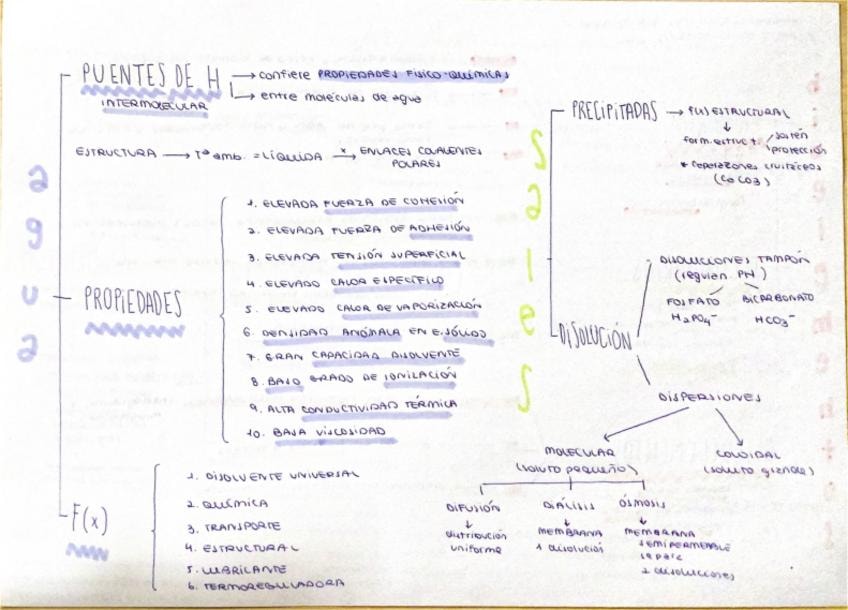 agua
PUENTES DE H → confiere PROPIEDADES FISICO-QUÍMICAS
→ entre moléculas de agua
INTERMOLECULAR
ESTRUCTURA → Tª amb. = LÍQUIDA → x ENLACES COVALENTES
POLARES
PROPIEDADES
1. ELEVADA FUERZA DE COHESIÓN
2. ELEVADA FUERZA DE ADHESIÓN
3. ELEVADA TENSIÓN SUPERFICIAL
4. ELEVADO CALOR ESPECÍFICO
5. ELEVADO CALOR DE VAPORIZACIÓN
6. DENSIDAD ANÓMALA EN E.SÓLIDO
7. GRAN CAPACIDAD DISOLVENTE
8. BAJO GRADO DE IONIZACIÓN
9. ALTA CONDUCTIVIDAD TÉRMICA
10. BAJA VISCOSIDAD
F(x)
1. DISOLVENTE UNIVERSAL
2. QUÍMICA
3. TRANSPORTE
4. ESTRUCTURAL
5. LUBRICANTE
6. TERMOREGULADORA
sales
PRECIPITADAS → f(x) ESTRUCTURAL
sostén
protección
* caparazones crustáceos
(CaCO3)
DISOLUCIÓN
DISOLUCIONES TAMPÓN
(regulan PH)
FOSFATO BICARBONATO
H2PO4- HCO3-
DISPERSIONES
MOLECULAR
(soluto pequeño)
COLOIDAL
(soluto grande)
DIFUSIÓN
distribución
uniforme
DIÁLISIS
MEMBRANA
1 disolución
ÓSMOSIS
MEMBRANA
SEMIPERMEABLE
separa
2 disoluciones